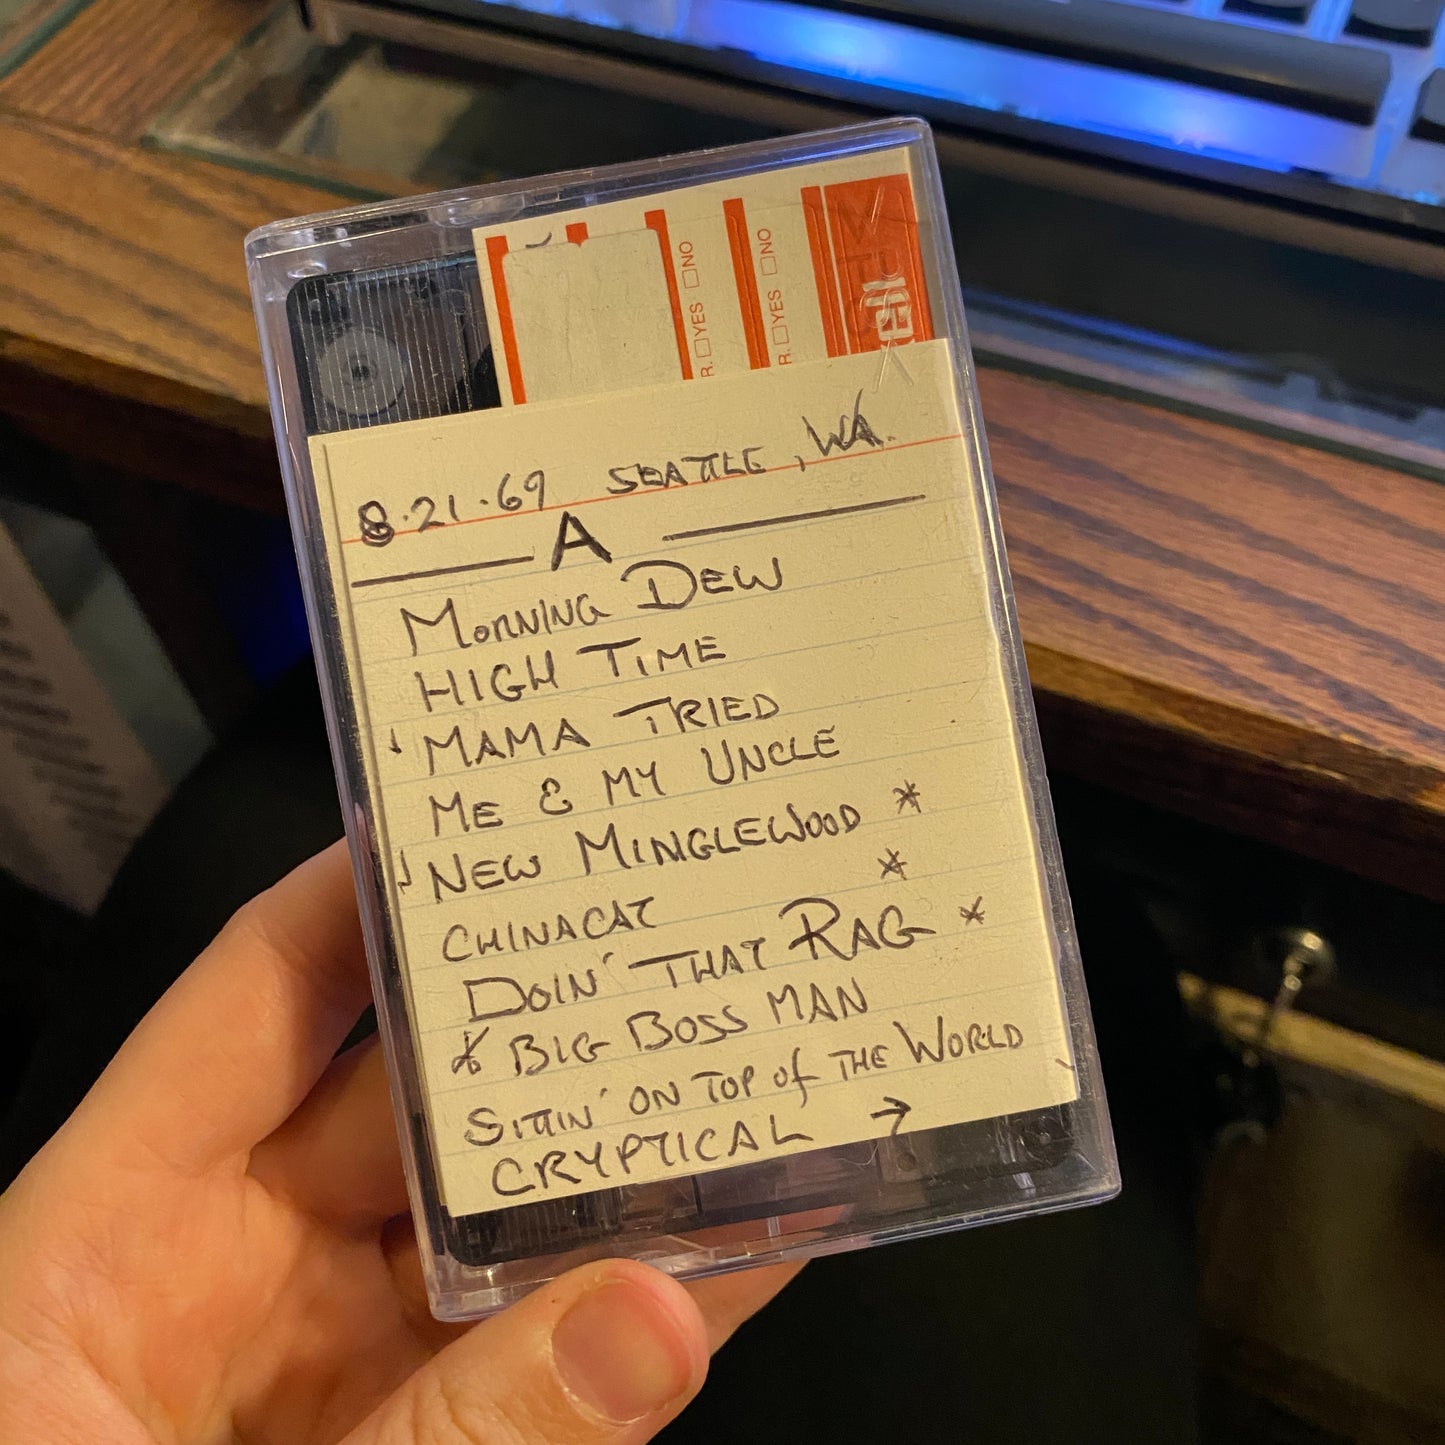 R. □YES □NO
R. □YES □NO
8.21.69 SEATTLE, WA.
A
MORNING DEW
HIGH TIME
MAMA TRIED
ME & MY UNCLE
NEW MINGLEWOOD *
CHINACAT *
DOIN' THAT RAG *
* BIG BOSS MAN
SITTIN' ON TOP of THE WORLD
CRYPTICAL →